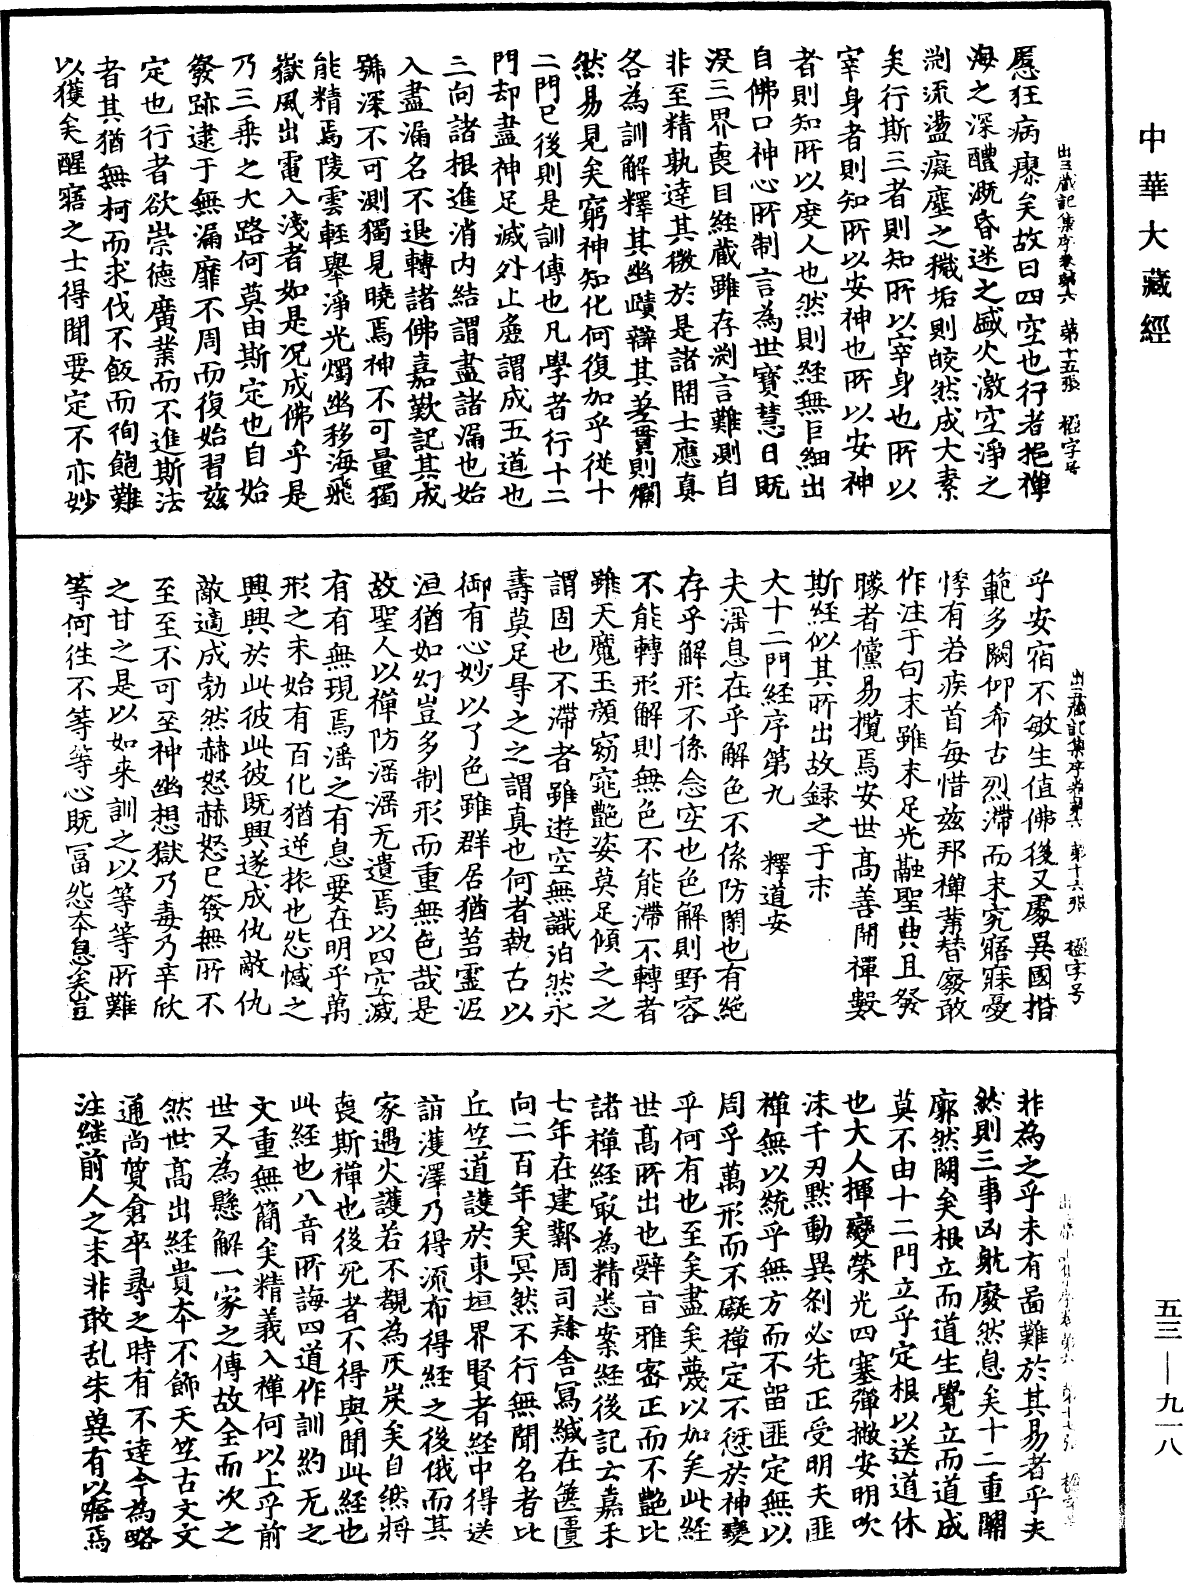 中華大藏經
出三藏記集序卷第六　第十五張　楹字号
愿狂病瘳矣故曰四空也行者挹禪
海之深醴溉昏迷之盛火激空淨之
淵流盪癡塵之穢垢則皎然成大素
矣行斯三者則知所以宰身也所以
宰身者則知所以安神也所以安神
者則知所以度人也然則經無巨細出
自佛口神心所制言為世寶慧日既
沒三界喪目經藏雖存淵言難測自
非至精孰達其微於是諸開士應真
各為訓解釋其幽賾辯其差貫則爛
然易見矣窮神知化何復加乎從十
二門已後則是訓傳也凡學者行十二
門却盡神足滅外止麁謂成五道也
三向諸根進消內結謂盡諸漏也始
入盡漏名不退轉諸佛嘉歎記其成
號深不可測獨見曉焉神不可量獨
能精焉陵雲輕舉淨光燭幽移海飛
嶽風出電入淺者如是況成佛乎是
乃三乘之大路何莫由斯定也自始
發跡逮于無漏靡不周而復始習茲
定也行者欲崇德廣業而不進斯法
者其猶無柯而求伐不飯而徇飽難
以獲矣醒寤之士得聞要定不亦妙
出三藏記集序卷第六　第十六張　楹字号
乎安宿不敏生值佛後又處異國楷
範多闕仰希古烈滯而未究寤寐憂
悸有若疾首每惜茲邦禪業替廢敢
作注于句末雖未足光融聖典且發
矇者儻易攬焉安世高善開禪數
斯經似其所出故録之于末
大十二門經序第九　釋道安
夫婬息在乎解色不係防閑也有絕
存乎解形不係念空也色解則野容
不能轉形解則無色不能滯不轉者
雖天魔玉顏窈窕艷姿莫足傾之之
謂固也不滯者雖遊空無識泊然永
壽莫足㝵之之謂真也何者執古以
御有心妙以了色雖群居猶芻靈泥
洹猶如幻豈多制形而重無色哉是
故聖人以禪防婬婬无遺焉以四空滅
有有無現焉婬之有息要在明乎萬
形之未始有百化猶逆旅也怨憾之
興興於此彼此彼既興遂成仇敵仇
敵適成勃然赫怒赫怒已發無所不
至至不可至神幽想獄乃毒乃辛欣
之甘之是以如來訓之以等等所難
等何往不等等心既冨怨本息矣豈
非為之乎未有啚難於其易者乎夫
然則三事凶躭廢然息矣十二重關
廓然闢矣根立而道生覺立而道成
莫不由十二門立乎定根以逆道休
也大人揮變榮光四塞彈撇安明吹
沫千刃默動異剎必先正受明夫匪
禪無以統乎無方而不留匪定無以
周乎萬形而不礙禪定不愆於神變
乎何有也至矣盡矣蔑以加矣此經
世高所出也辭旨雅密正而不艷比
諸禪經最為精悉案經後記云嘉禾
七年在建鄴周司隸舍寫緘在篋匱
向二百年矣冥然不行無聞名者比
丘竺道護於東垣界賢者經中得送
詣濩澤乃得流布得經之後俄而其
家遇火護若不覩為灰炭矣自然將
喪斯禪也後死者不得與聞此經也
此經也八音所誨四道作訓約无乏
文重無簡矣精義入禪何以上乎前
世又為懸解一家之傳故全而次之
然世高出經貴本不飾天竺古文文
通尚質倉卒尋之時有不達今為略
注繼前人之末非敢乱朱糞有以寤焉
五三—九一八